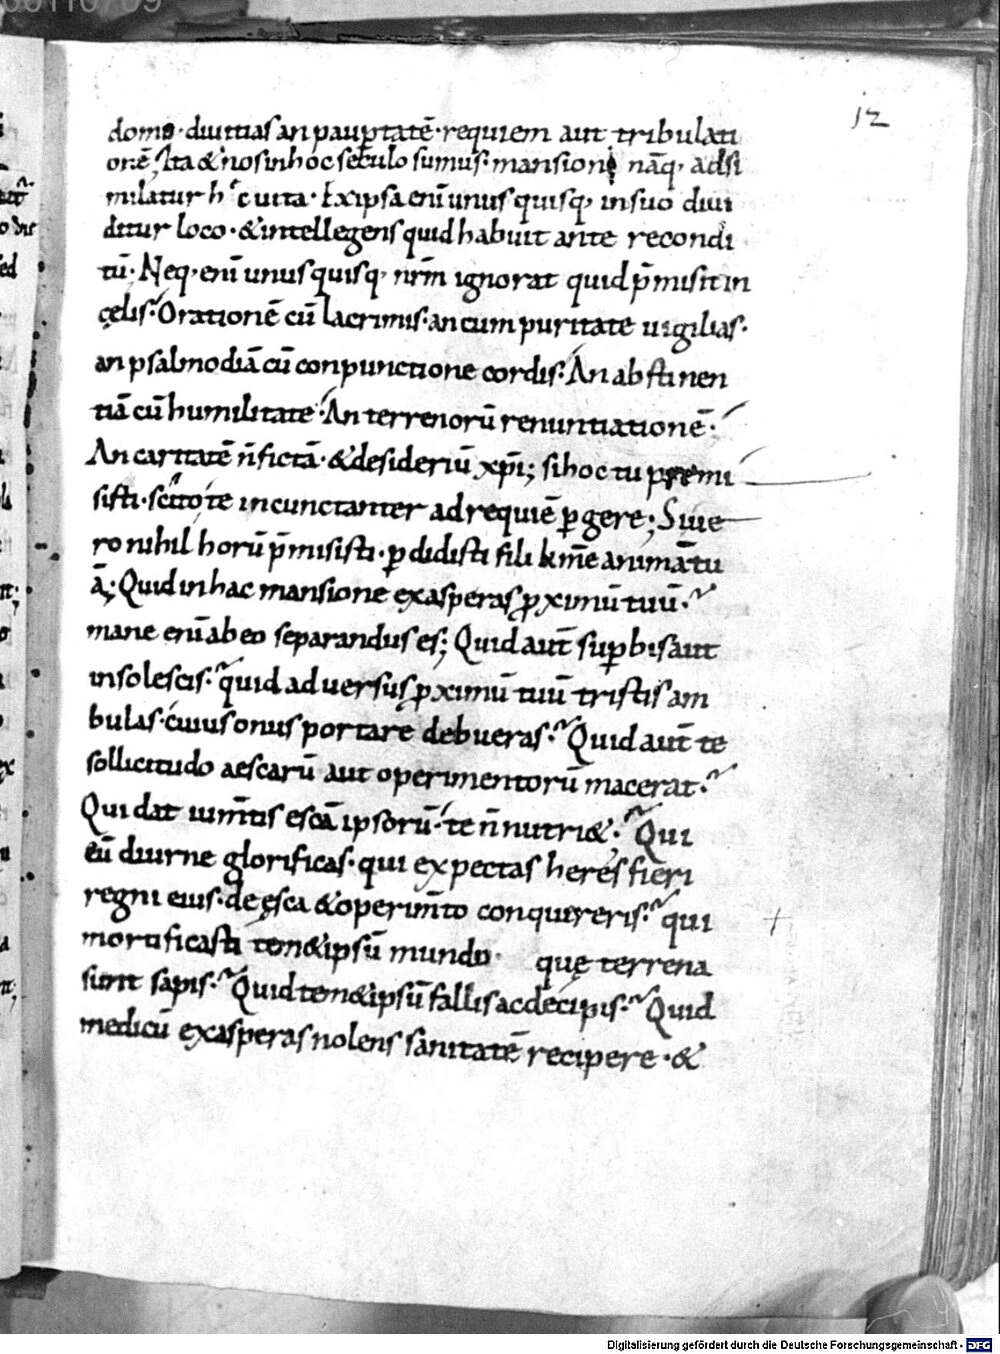 12
domo· diuitias an paup̱tatē· requiem aut tribulati
onē; Ita & nos in hoc seculo sumus· mansioni nāq· adsi
milatur hęc uita· Ex ipsa enī unus quisq· in suo diui
ditur loco· & intellegens quid habuit ante recondi
tū· Neq· enī unus quisq· nr̄m ignorat quid p̄misit in
cęlis· Orationē cū lacrimis· an cum puritate uigilias·
an psalmodiā cū conpunctione cordis· An abstinen
tiā cū humilitate· An terrenorū renuntiationē·
An caritatē n̄ fictā· & desideriū xp̄i; si hoc tu premi
sisti· scitote incunctanter ad requiē p̱gere; Si ue
ro nihil horū p̄misisti· p̱didisti fili km̄e animā tu
ā; Quid in hac mansione exasperas ꝓximū tuū·
mane enī ab eo separandus es; Quid aut̄ sup̱bis aut
insolescis· quid aduersus ꝓximū tuū tristis am
bulas· cuius onus portare debueras· Quid aut̄ te
sollicitudo aescarū aut operimentorū macerat·
Qui dat ium̄tis escā ipsorū· te n̄ nutri&· Qui
eū diurne glorificas· qui expectas heres fieri
regni eius· de ęsca & operim̄to conquireris· qui
mortificasti tem&ipsū mundo· quę terrena
sunt sapis· Quid tem&ipsū fallis ac decipis· Quid
medicū exasperas nolens sanitatē recipere· &
Digitalisierung gefördert durch die Deutsche Forschungsgemeinschaft - DFG